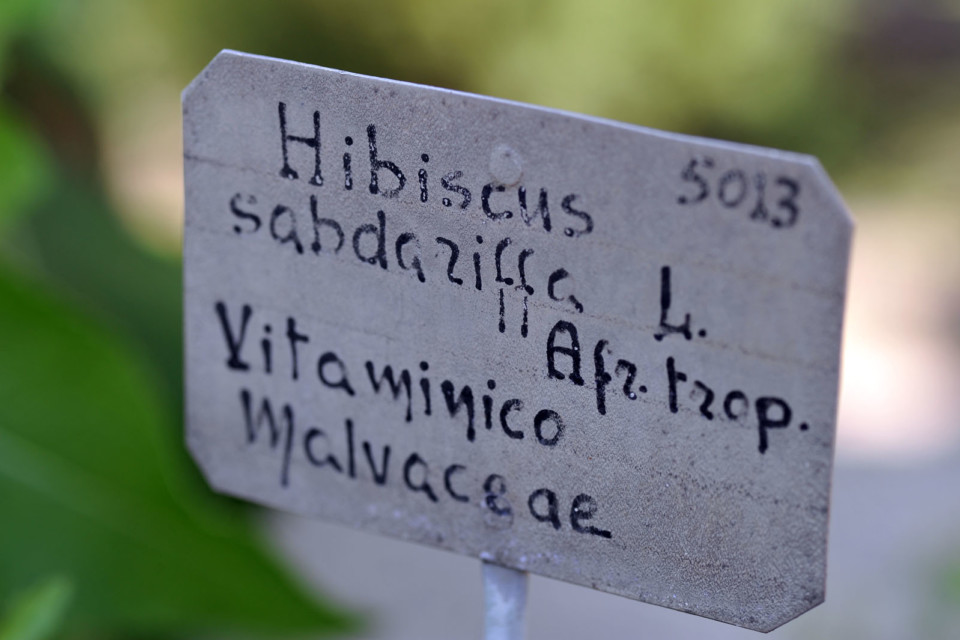 Hibiscus 5013
sabdariffa L.
Afr. trop.
Vitaminico
Malvaceae